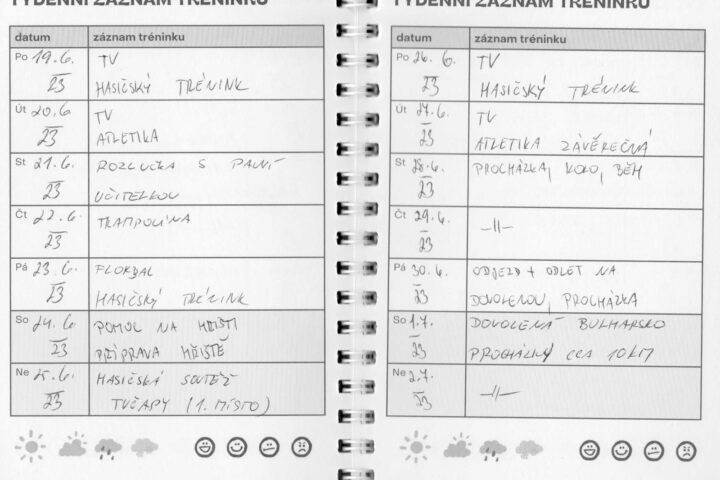 TÝDENNÍ ZÁZNAM TRÉNINKU
datum záznam tréninku
Po 19.6. TV
23 HASIČSKÝ TRÉNINK
Út 20.6 TV
23 ATLETIKA
St 21.6. ROZLUČKA S PANÍ
23 UČITELKOU
Čt 22.6. TRAMPOLÍNA
23
Pá 23.6. FLORBAL
23 HASIČSKÝ TRÉNINK
So 24.6. POMOC NA HŘIŠTI
23 PŘÍPRAVA HŘIŠTĚ
Ne 25.6. HASIČSKÁ SOUTĚŽ
23 TUČAPY (1. MÍSTO)
TÝDENNÍ ZÁZNAM TRÉNINKU
datum záznam tréninku
Po 26.6. TV
23 HASIČSKÝ TRÉNINK
Út 27.6. TV
23 ATLETIKA ZÁVĚREČNÁ
St 28.6. PROCHÁZKA, KOLO, BĚH
23
Čt 29.6. –||–
23
Pá 30.6. ODJEZD + ODLET NA
23 DOVOLENOU, PROCHÁZKA
So 1.7. DOVOLENÁ BULHARSKO
23 PROCHÁZKY CCA 10KM
Ne 2.7. –||–
23